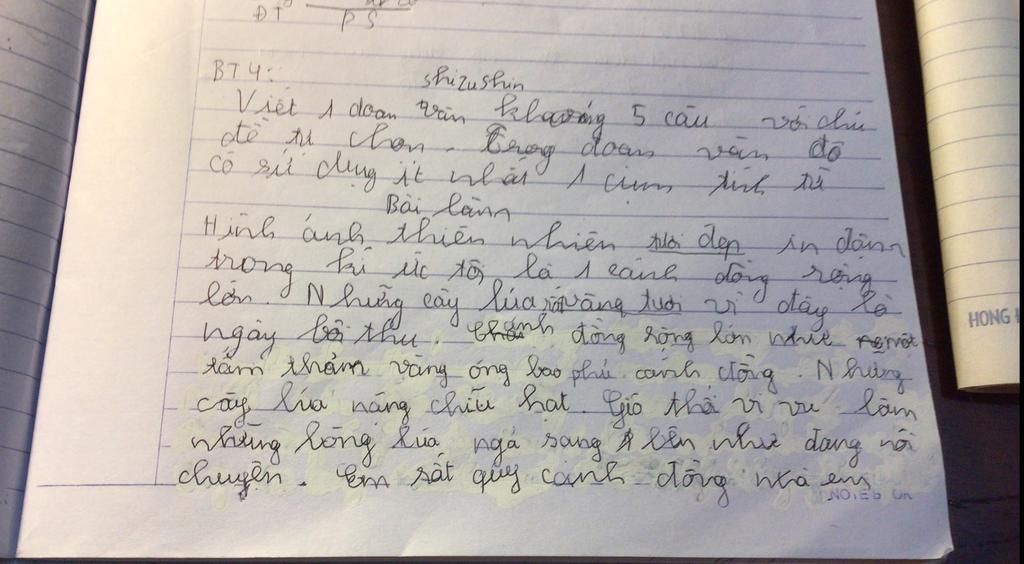 ĐT
P S
BT4:
shizushin
Viết 1 đoan văn khoảng 5 câu với chủ
đề tự chọn. Trong đoan văn đó
có sử dụng ít nhất 1 cụm tính từ
Bài làm
Hình ảnh thiên nhiên tươi đẹp in đậm
trong kí ức tôi là 1 cánh đồng rộng
lớn. Những cây lúa vàng tươi vì đây là
ngày thu. cánh đồng rộng lớn như một
tấm thảm vàng óng bao phủ cánh đồng. Những
cây lúa nặng chĩu hạt. Gió thổi vi vu làm
những bông lúa ngả sang bên như đang nói
chuyện. Em rất quý canh đồng nhà em
NOTEB OK
HONG